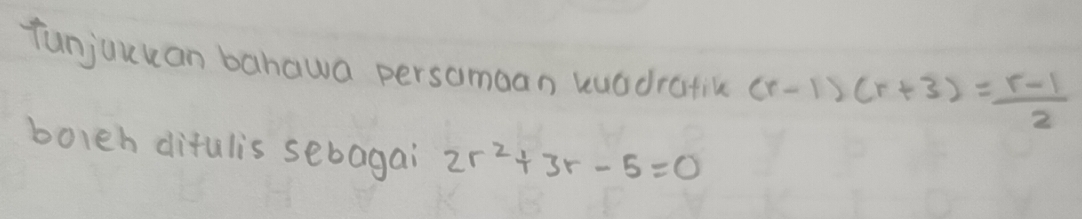 Tunjukkan bahawa persamaan kuadratik (r-1)(r+3) = \frac{r-1}{2}
boleh ditulis sebagai 2r²+3r-5=0